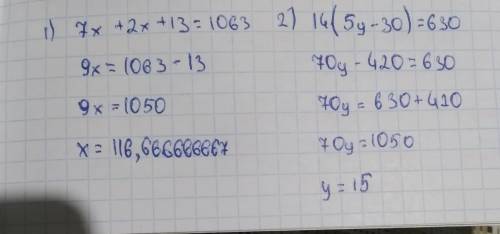 1) 7x + 2x + 13 = 1063
9x = 1063 - 13
9x = 1050
x = 116,666666667
2) 14(5y - 30) = 630
70y - 420 = 630
70y = 630 + 420
70y = 1050
y = 15